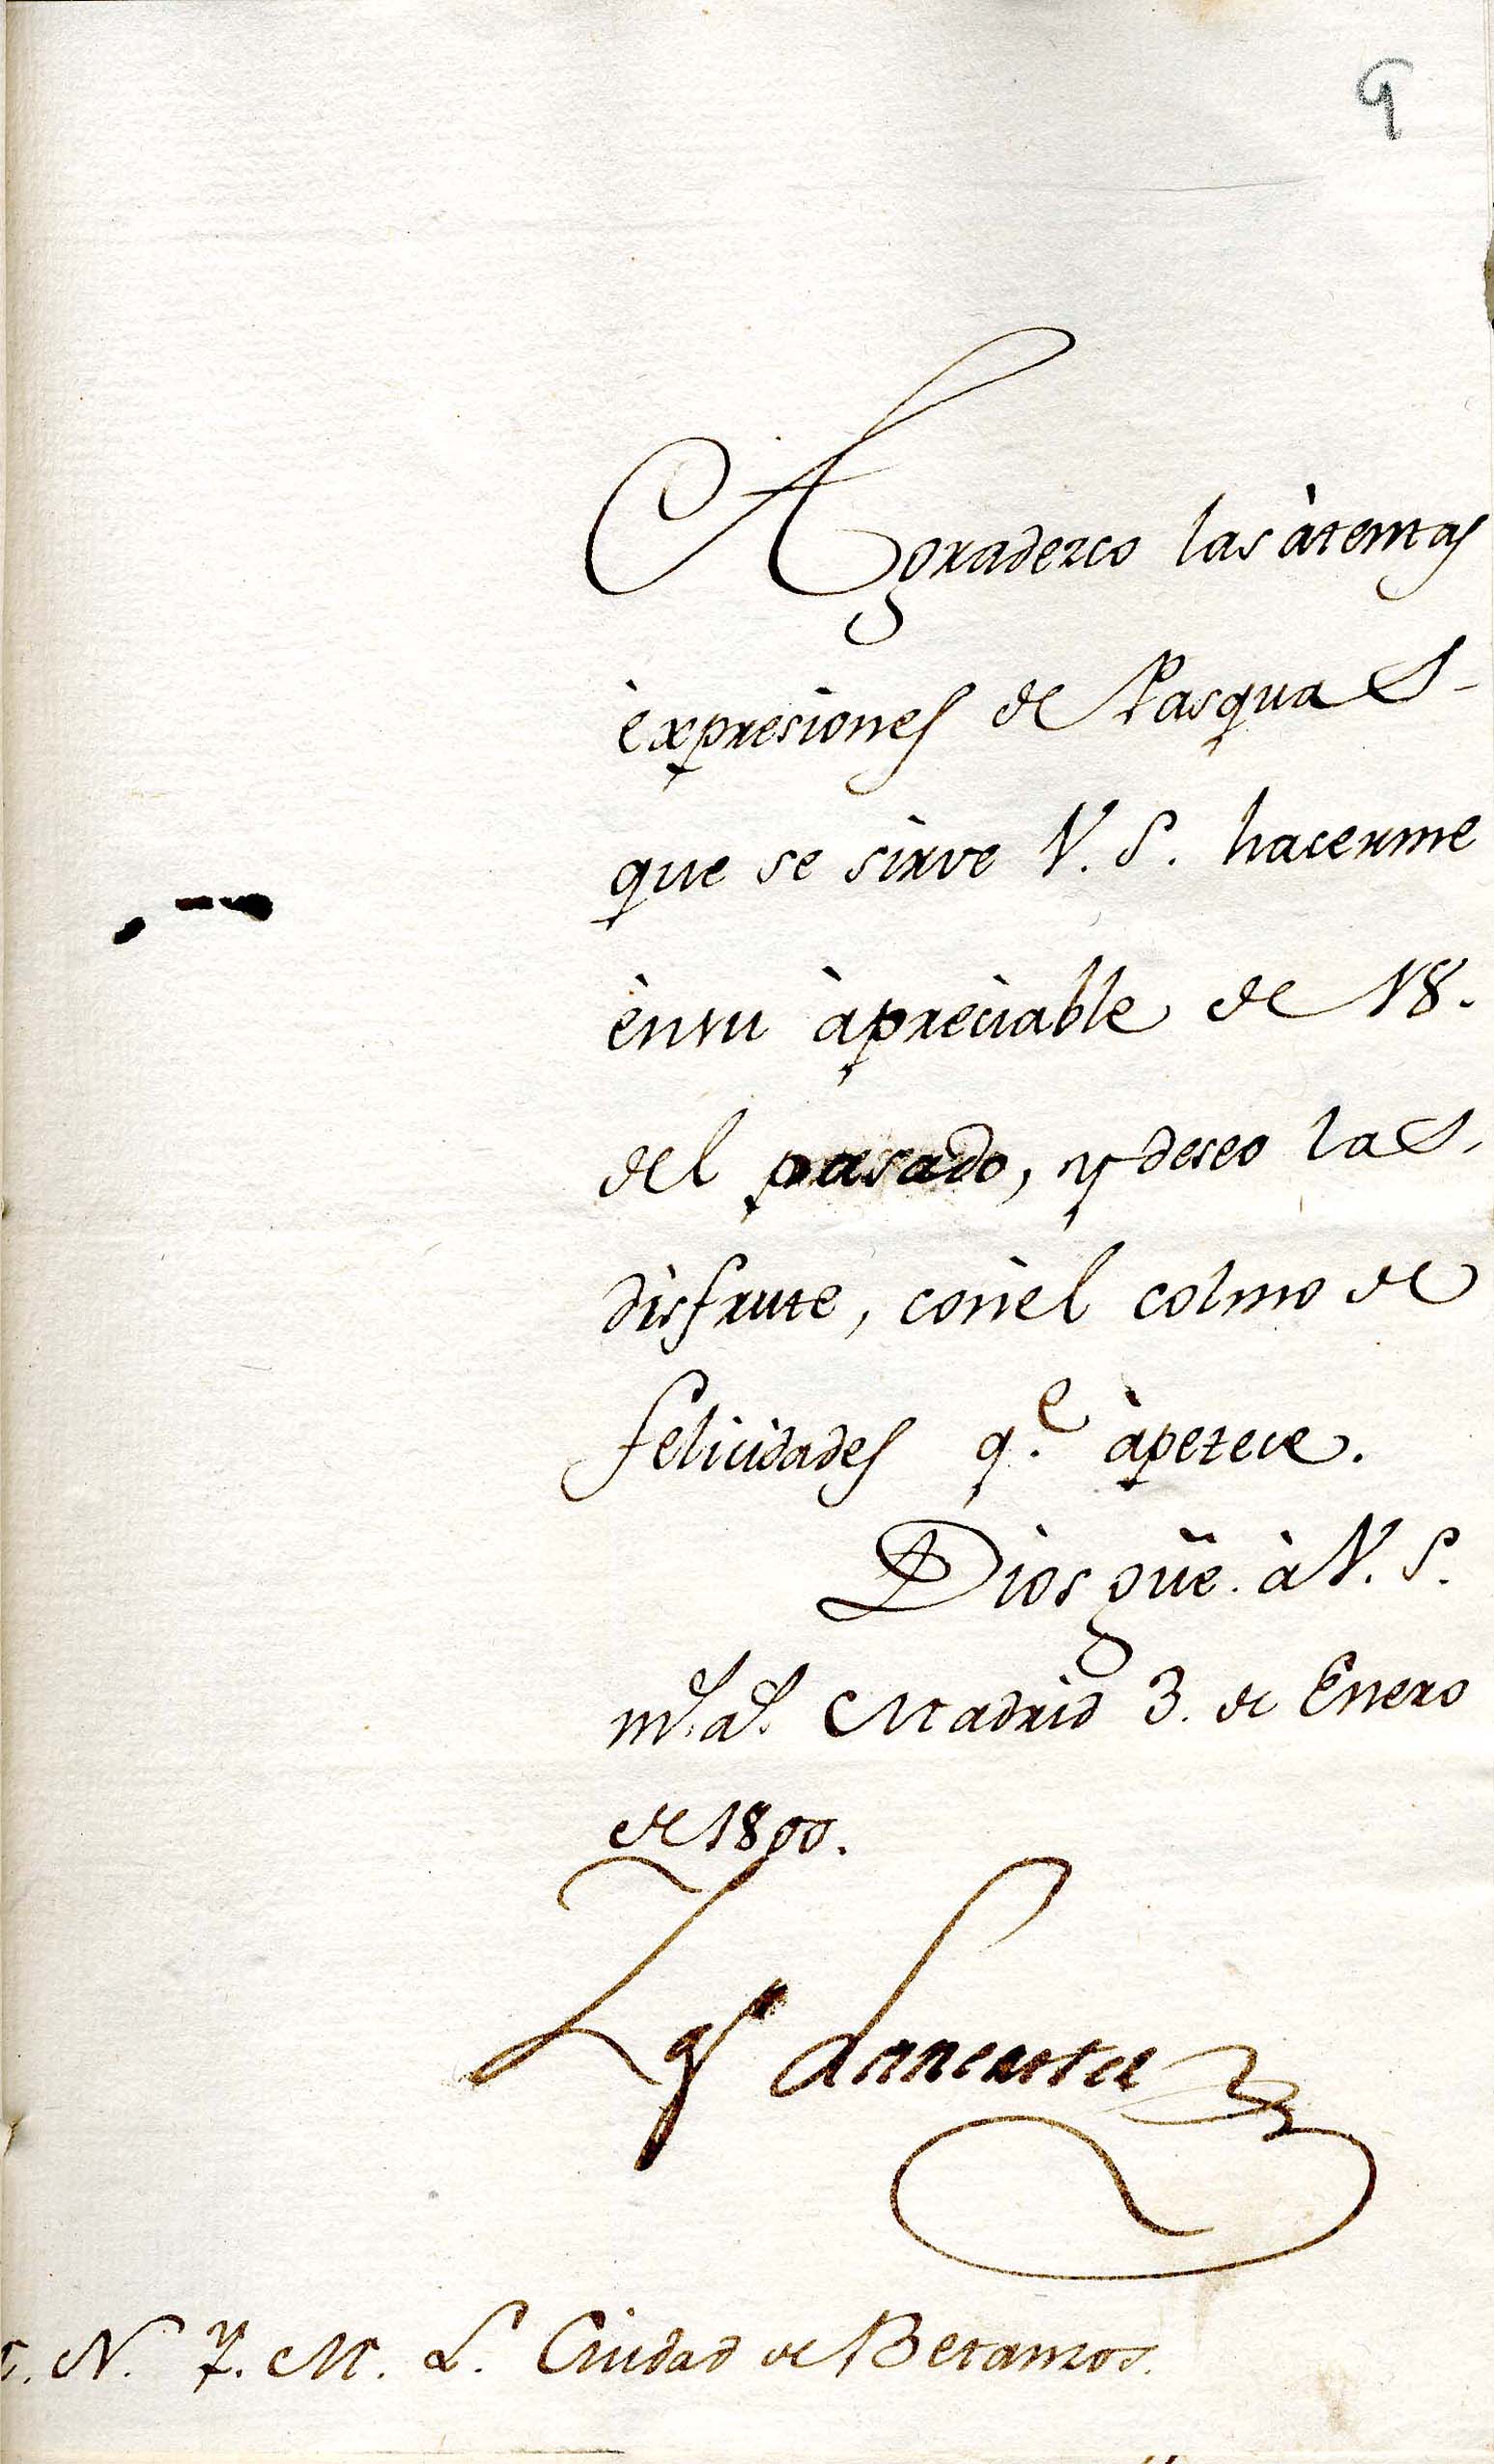 9
Agradezco las àtentas
èxpresiones de Pasquas
que se sirve V. S. hacerme
ènsu àpreciable de 18.
del pasado, y deseo las
disfrute, conèl colmo de
felicidades q.e àpetece.
Dios güe. à V. S.
m.s a.s Madrid 3. de Enero
de 1800.
Lancaster
N. y. M. L. Ciudad de Betanzos.